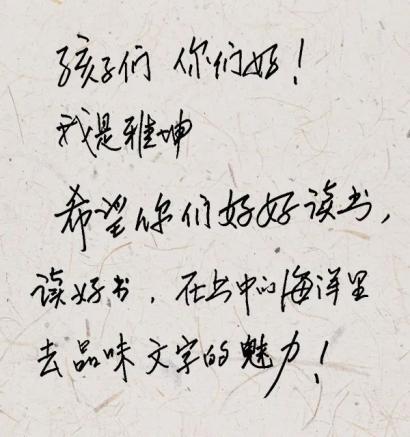 孩子们 你们好！
我是雅坤
希望你们好好读书，
读好书，在书中的海洋里
去品味文字的魅力！